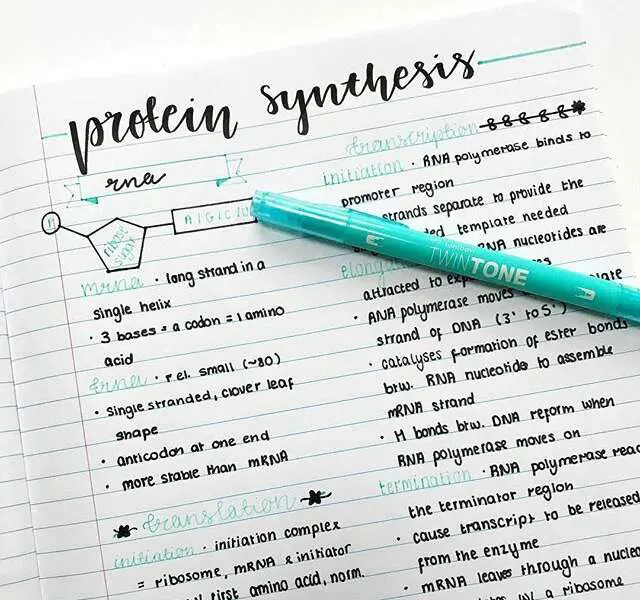 protein synthesis
rna
A|G|C|U
ribose
sugar
mrna · long strand in a
single helix
· 3 bases = a codon = 1 amino
acid
trna · rel. small (~80)
· single stranded, clover leaf
shape
· anticodon at one end
· more stable than mRNA
translation
initiation · initiation complex
= ribosome, mRNA & initiator
first amino acid, norm.
transcription
initiation · RNA polymerase binds to
promoter region
strands separate to provide the
template needed
RNA nucleotides are
attracted to
RNA polymerase moves
strand of DNA (3' to 5')
· catalyses formation of ester bonds
btw. RNA nucleotide to assemble
mRNA strand
· H bonds btw. DNA reform when
RNA polymerase moves on
termination · RNA polymerase
the terminator region
· cause transcript to be released
from the enzyme
· mRNA leaves through a
a ribosome
TWINTONE